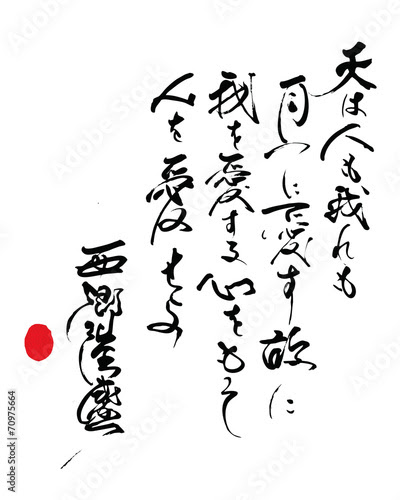 天は人も我れも
同一に愛す故に
我を愛する心をもって
人を愛せよ
西郷隆盛
Adobe Stock | #70975664